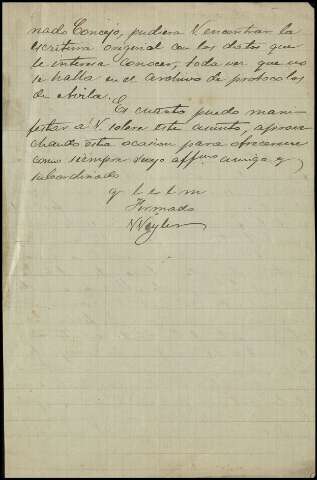 nado Concejo, pudiera V. encontrar la
escritura original con los datos que
le interesa conocer, toda vez que no
se halla en el archivo de protocolos
de Avila.
Es cuanto puedo mani-
festar á V. sobre este asunto, aprove-
chando esta ocasion para ofrecerme
como siempre suyo affmo amigo y
subordinado
q l b l m
Firmado